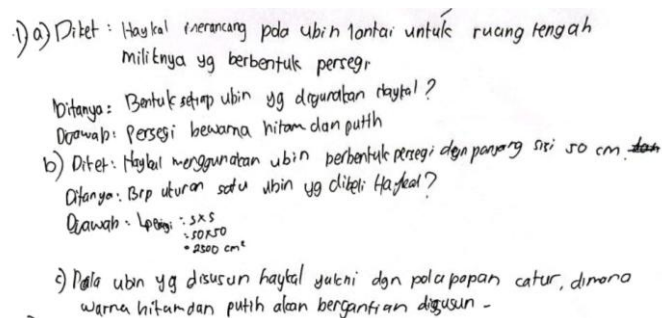 1) a) Diket : Haykal merancang pola ubin lantai untuk ruang tengah
miliknya yg berbentuk persegi
Ditanya : Bentuk setiap ubin yg digunakan Haykal ?
Dijawab : Persegi bewarna hitam dan putih
b) Diket : Haykal menggunakan ubin berbentuk persegi dgn panjang sisi 50 cm.
Ditanya : Brp ukuran satu ubin yg dibeli Haykal ?
Dijawab : Lpersegi : s x s
: 50 x 50
= 2500 cm²
c) Pola ubin yg disusun haykal yakni dgn pola papan catur, dimana
warna hitam dan putih akan bergantian disusun -